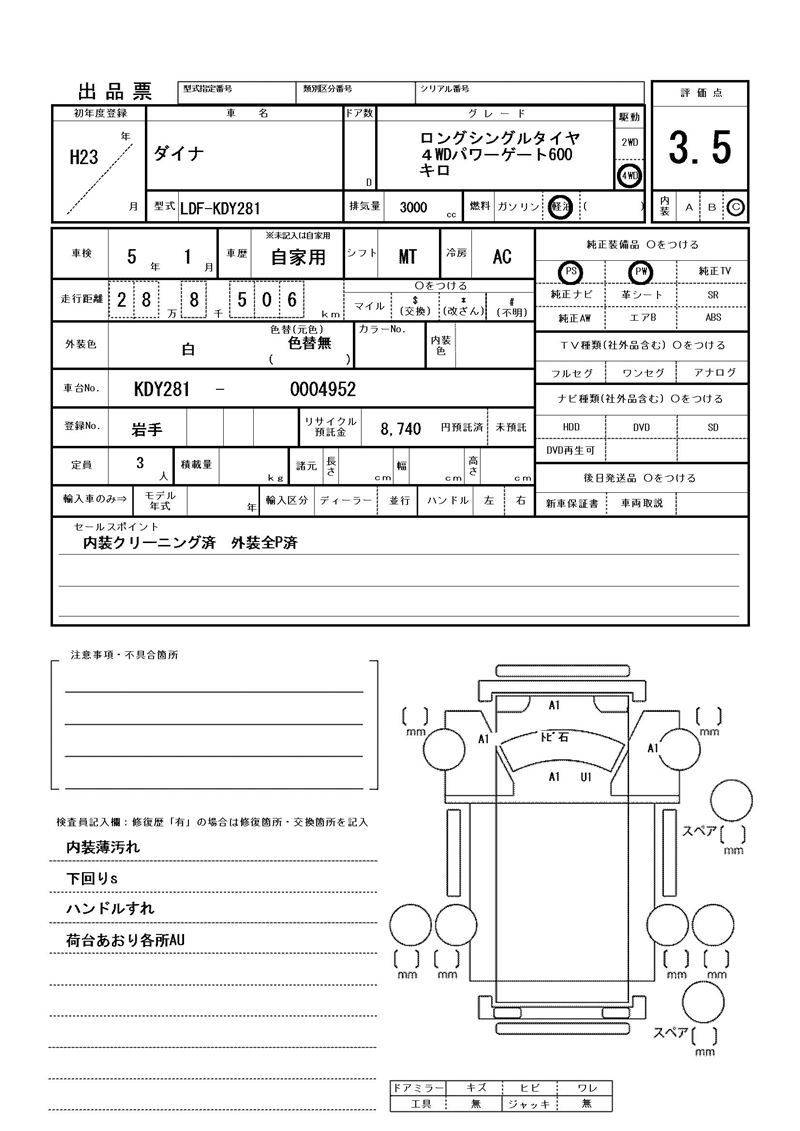 出品票 型式指定番号 類別区分番号 シリアル番号
評価点
3.5
内装 A B C
初年度登録 車名 ドア数 グレード 駆動
H23 年
月
ダイナ
D
ロングシングルタイヤ
4WDパワーゲート600
キロ
2WD
4WD
型式 LDF-KDY281 排気量 3000 cc 燃料 ガソリン 軽油 ( )
車検 5年 1月 車歴 ※未記入は自家用
自家用 シフト MT 冷房 AC
走行距離 28万 8千 506 km
〇をつける
マイル $(交換) *(改ざん) #(不明)
外装色 白 色替(元色)
色替無
( )
カラーNo. 内装色
車台No. KDY281 - 0004952
登録No. 岩手 リサイクル預託金 8,740 円預託済 未預託
定員 3人 積載量 kg 諸元 長さ cm 幅 cm 高さ cm
輸入車のみ⇒ モデル年式 年 輸入区分 ディーラー 並行 ハンドル 左 右
純正装備品 〇をつける
PS PW 純正TV
純正ナビ 革シート SR
純正AW エアB ABS
TV種類(社外品含む) 〇をつける
フルセグ ワンセグ アナログ
ナビ種類(社外品含む) 〇をつける
HDD DVD SD
DVD再生可
後日発送品 〇をつける
新車保証書 車両取説
セールスポイント
内装クリーニング済 外装全P済
注意事項・不具合箇所
検査員記入欄:修復歴「有」の場合は修復箇所・交換箇所を記入
内装薄汚れ
下回りs
ハンドルすれ
荷台あおり各所AU
A1
[ ] mm [ ] mm
A1 トビ石 A1
A1 U1
スペア [ ]
mm
[ ] [ ] [ ] [ ]
mm mm mm mm
スペア [ ]
mm
ドアミラー キズ ヒビ ワレ
工具 無 ジャッキ 無